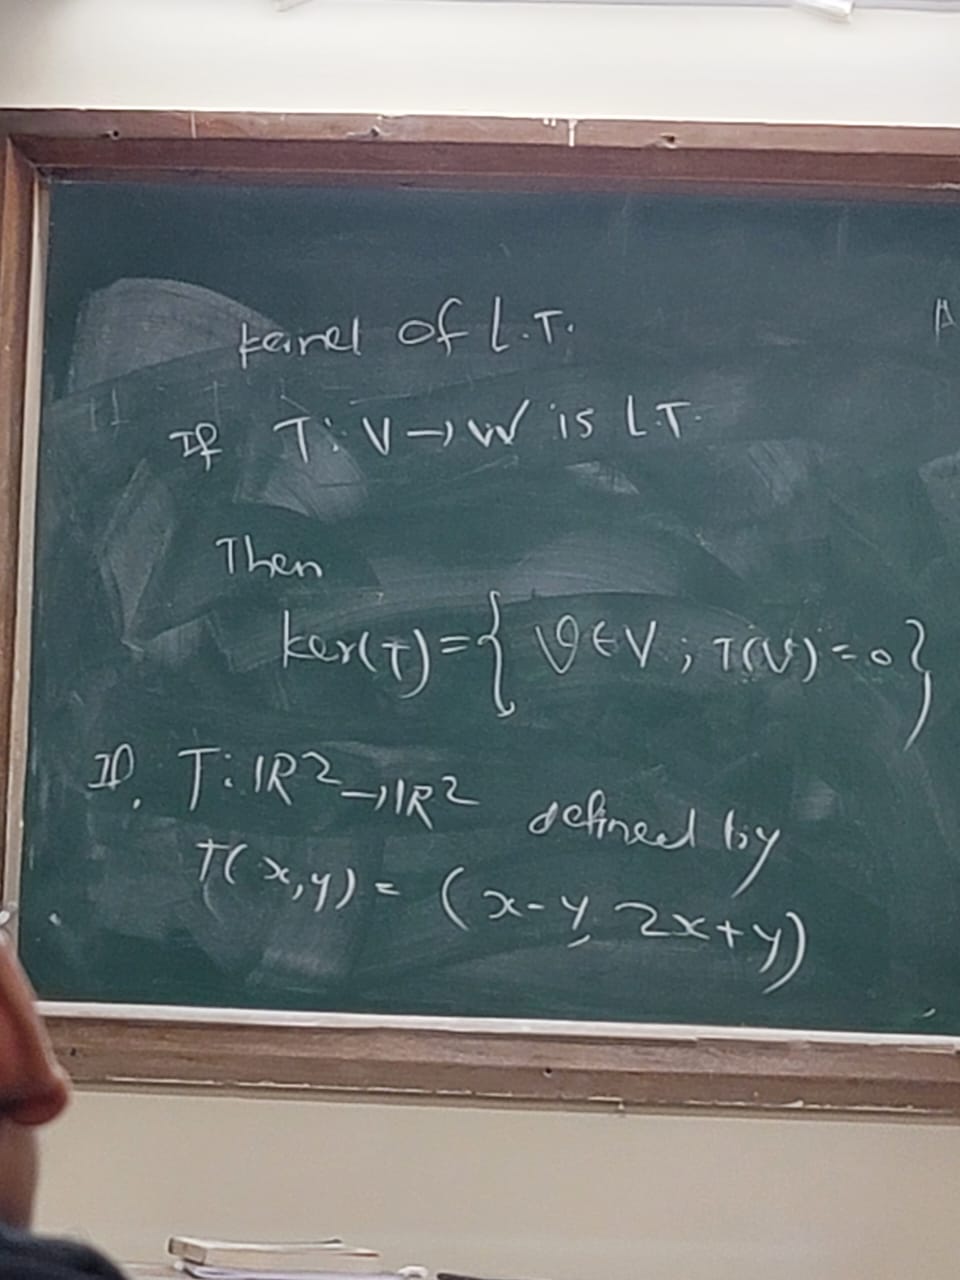 kernel of L.T.
If T: V → W is L.T.
Then
ker(T) = { v ∈ V ; T(v) = 0 }
If. T: ℝ² → ℝ² defined by
T(x,y) = (x-y, 2x+y)